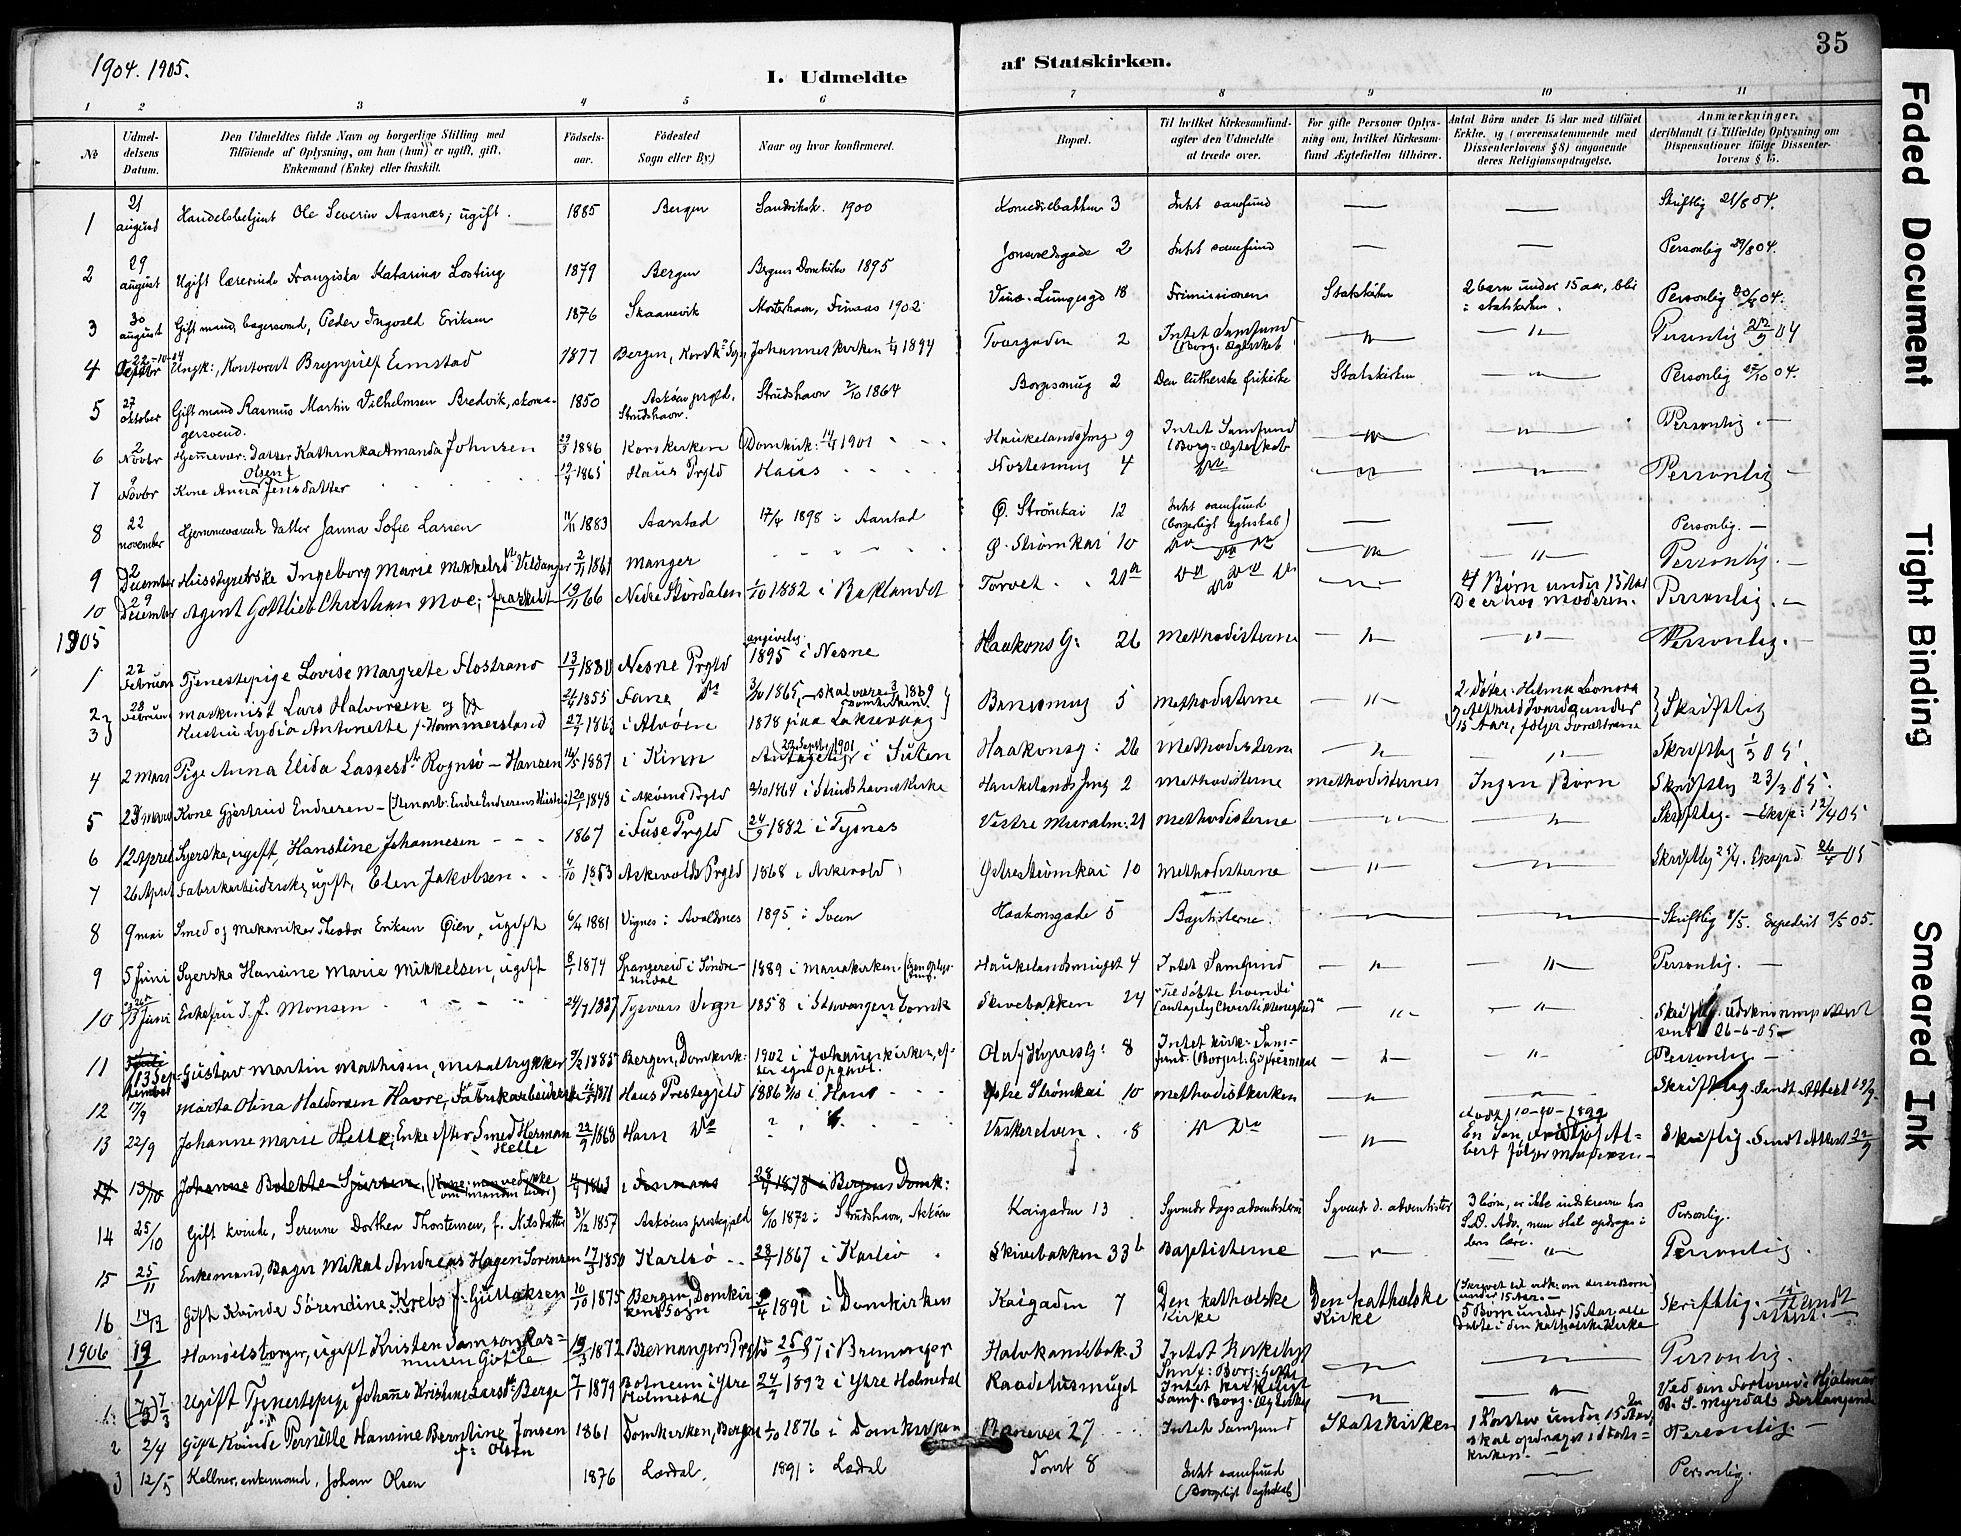 1904. 1905.
I. Udmeldte af Statskirken.
35
1 2 3 4 5 6 7 8 9 10 11
No
Udmeldelsens Datum.
Den Udmeldtes fulde Navn og borgerlige Stilling med Tilføiende af Oplysning, om han (hun) er ugift, gift, Enkemand (Enke) eller fraskilt.
Fødselsaar.
Fødested Sogn eller By.)
Naar og hvor konfirmeret.
Bopæl.
Til hvilket Kirkesamfund agter den Udmeldte at træde over.
For gifte Personer Oplysning om, hvilket Kirkesamfund Ægtefællen tilhører.
Antal Børn under 15 Aar med tilføiet Erklæ. ig (overensstemmende med Dissenterlovens § 8) angaaende deres Religionsopdragelse.
Anmærkninger, deriblandt (i Tilfælde) Oplysning om Dispensationer ifølge Dissenterlovens § 15.
1 21 august Handelsbetjent Ole Severin Aasnæs, ugift. 1885 Bergen Sandviksk. 1900 Komediebakken 3 Intet samfund — — Skriftlig 21/8 04.
2 29 august Ugift lærerinde Franziska Katarina Losting 1879 Bergen Bergens Domkirke 1895 Jonsvoldsgade 2 Intet samfund — — Personlig 29/8 04.
3 30 august Gift mand, bagersvend, Peder Ingvald Eriksen 1876 Skaanevik Mosterhavn, Finaas 1902 Lungegd 18 Frimissionen Statskirken 2 barn under 15 aar, bli i statskirken. Personlig 30/8 04.
4 22-10-04 Ungk:, Kontorist Brynjulf Eimstad 1877 Bergen, Korsk: Sogn Johanneskirken 1894 Torvgaden 2 Intet Samfund (Borg: Ægteskab — " — — " — Personlig 22/9 04
5 27 oktober Gift mand Rasmus Martin Vilhelmsen Bredvik, skomagersvend. 1850 Askøen prgld, Strudshavn. Strudshavn 2/10 1864 Borgesmug 2 Den lutherske frikirke Statskirken — Personlig 27/10 04.
6 2 Novbr Hjemmevær: Datter Kathinka Amanda Johnsen 29/3 1886 Korskirken Domkirk: 1901 Haukelandssmug 9 Intet Samfund (Borg: Ægteskab — " — — " — Personlig. —
7 9 Novbr Kone Anna Jensdatter Olsen 19/7 1865 Haus Prgld Haus Nøstesmug 4 — " — — " — Personlig —
8 22 november Hjemmeværende datter Janna Sofie Larsen 11/11 1883 Aarstad 17/4 1898 i Aarstad Ø. Strømkai 12 Intet samfund (borgerligt ægteskab) — — Personlig. —
9 2 December Husstyrerske Ingeborg Marie Mikkelsdtr Vildanger 2/11 1861 Manger Ø. Strømkai 10 — " — — " — Personlig. —
10 29 December Agent Gottlieb Christian Moe; fraskilt 13/11 66 Nedre Stjørdalen 1/10 1882 i Baklandet Torvet 21a — " — 4 Børn under 15 Aar De er hos moderen. Personlig. —
1905
1 22 Februar Tjenestepige Lovise Margrete Flostrand 13/7 1880 Nesne Prgld angivelig 1895 i Nesne Haakons G: 26 Methodisterne — " — — " — Personlig. —
2 28 Februar Maskinist Lars Halvorsen og 24/4 1855 Fane 3/10 1865, — skal være 3/ 1869 Domkirken. Banesmug 5 Methodisterne — " — 2 Døtre: Helma Leonora 15 Aar, følger Forældrene Skriftlig
3 Hustru Lydia Antonette f. Hammersland 27/7 1863 i Alvøen 1878 fra Laksevaag
4 2 Mars Pige Anna Elida Lassesdtr Rognsø - Hansen 14/5 1887 i Kinn Antagelig 29 Septbr 1901 i Sulen Haakonsg: 26 Methodisterne — " — — " — Skriftlig 1/3 05.
5 23 Mars Kone Gjertrud Endresen - (Stenarb. Endre Endresens Hustru) 20/1 1848 i Askøens Prgld 2/10 1864 i Strudshavns Kirke Haukelandssmug 2 Methodisterne Methodisternes Ingen Børn Skriftlig 23/3 05.
6 12 April Syerske, ugift, Hansline Johannesen 1867 i Fuse Prgld 24/9 1882 i Tysnes Vestre Muralm: 21 Methodisterne — " — — " — Skriftlig. — Eksp: 12/4 05
7 26 April Fabrikarbeiderske, ugift, Elen Jakobsen 4/10 1853 Askevolds Prgld 1868 i Askevold Østre Strømkai 10 Methodisterne — " — — " — Skriftlig 25/4. Ekspd. 26/4 05
8 9 mai Smed og Mekaniker Theodor Eriksen Øien, ugift 6/4 1881 Vignes i Avaldsnes 1895 i Sveen Haakonsgade 5 Baptisterne. — — Skriftlig 8/5. Expederet 9/5 05.
9 5 Juni Syerske Hansine Marie Mikkelsen, ugift 8/1 1874 Spangereid i Søndreundal 1889 i Mariakirken. (Egen Oplysning) Haukelandsmuget 4 Intet Samfund — " — — " — Personlig. —
10 Juni Enkefru J. J. Monsen 24/7 1837 Tysvær Sogn 1858 i Stavangers Domk Skivebakken 24 "Til døbte troende" (antagelig Christi Menighed" — " — — " — sendt 26-6-05 —
11 13 September Gustav Martin Mathisen, Metaltrykker 9/2 1885 Bergen, Domkirk: 1902 i Johanneskirken, efter egen Opgave. Olaf Kyrres G: 8 Intet kirk: Samfund. (Borgerl. Giftermaal — " — — " — Personlig —
12 17/9 Marta Olina Haldorsen Havre, Fabrikarbeiderske 1871 Haus Prestegjeld 1886 i Haus Østre Strømkai 10 Methodistkirken — " — — " — Skriftlig. Sendt Attest 19/9.
13 22/9 Johanne Marie Helle, Enke efter Smed Herman Helle 24/9 1868 Haus ? Vaskerelven 8 — " — født 10-10-1899 En Søn, Fridtjof Albert følger Moderen. Skriftlig. Sendt Attest 22/9
14 13/10 Johanne Bolette Sjursen, 1863 i Finnaas 1878 i Bergens Domk:
14 25/10 Gift kvinde, Serenne Dorthea Thorstensen, f. Nilsdatter 31/12 1857 Askøens prestegjeld 6/10 1872 i Strudshavn, Askøen Kaigaden 13 Syvende dags adventisterne Syvende d. adventister 3 børn, er ikke indskrevne hos S.D. Adv., men skal opdrages i dens lære. Personlig.
15 25/11 Enkemand, Bager Mikal Andreas Hagen Sørensen 17/3 1850 Karlsø 28/7 1867 i Karlsø Skivebakken 33b Baptisterne — " — — " — Personlig.
16 14/12 Gift Kvinde Sørendine Krebs f: Gullaksen 10/10 1875 Bergen, Domkirkens Sogn 1891 i Domkirken Kaigaden 7 Den katholske Kirke Den katholske Kirke (Skrevet til vedk: om der er Børn under 15 Aar.— 5 Børn under 15 Aar, alle døbte i den katholske Kirke Skriftlig. Sendt Attest. —
1906 19/1 Handelsborger, ugift Kristen Samson Rasmussen Gotle 1872 Bremangers Prgld 25/9 87 i Bremanger Halvkandebak. 3 Intet Kirkeligt Samf: Borg: Gifte — " — — Personlig.
1. 7/3 Ugift Tjenestepige Johanne Kristine Larsdtr Berge 7/1 1879 Botnem i Ytre Holmedal 24/9 1893 i Ytre Holmedal Raadstusmuget Intet kirkeligt Samf. Borg: Ægteskab — " — — " — Ved sin Forlovede Hjalmar B. S. Myrdals Forlangende
2 2/4 Gift Kvinde Pernille Hansine Berntine Jonsen f: Olsen 1861 Domkirken, Bergen 1/10 1876 i Domkirken 27 Intet Samfund Statskirken 1 Datter under 15 Aar, skal opdrages i Statskirken. — Personlig.
3 12/5 Kellner, enkemand, Johan Olsen 1876 Lærdal. 1891 i Lærdal Torvet 8 Intet samfund (Borgerligt ægteskab) — Personlig.
Faded Document
Tight Binding
Smeared Ink